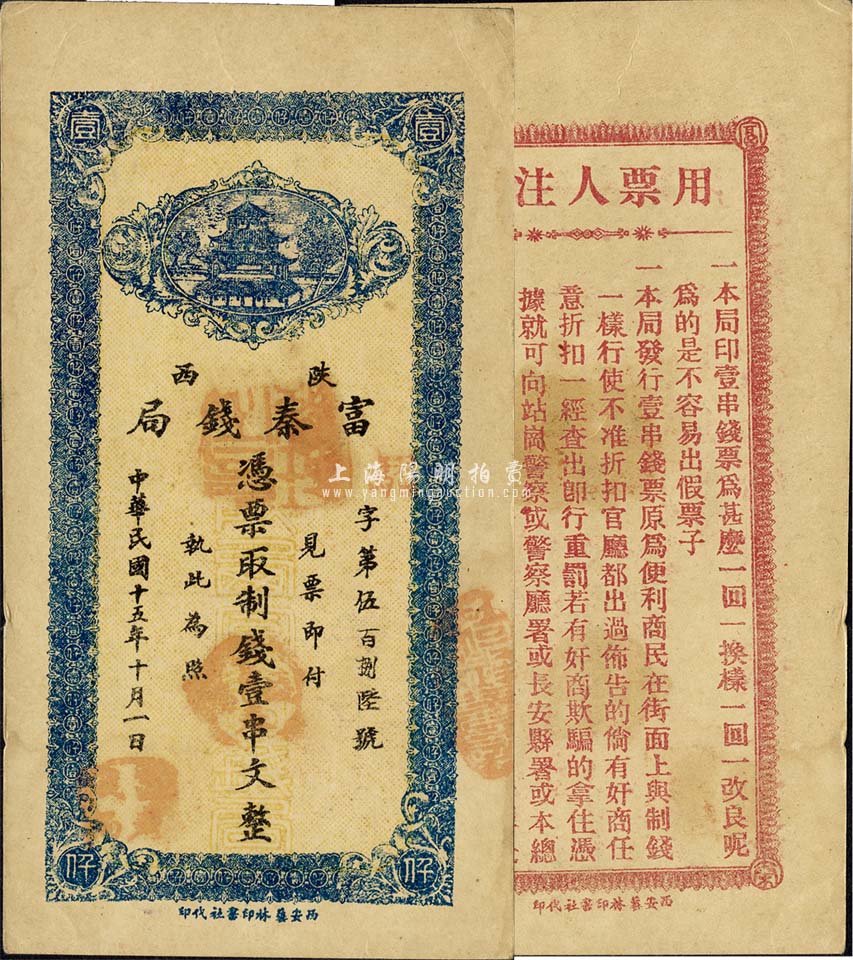 壹
壹
陝西
富秦錢局
字第伍百捌陸號
見票即付
憑票取制錢壹串文整
執此為照
中華民國十五年十月一日
西安藝林印書社代印
上海陽明拍賣
www.yangmingauction.com
用票人注
一本局印壹串錢票爲甚麼一回一換樣一回一改良呢
爲的是不容易出假票子
一本局發行壹串錢票原爲便利商民在街面上與制錢
一樣行使不准折扣官廳都出過佈告的倘有奸商任
意折扣一經查出卽行重罰若有奸商欺騙的拿住憑
據就可向站崗警察或警察廳署或長安縣署或本總
西安藝林印書社代印